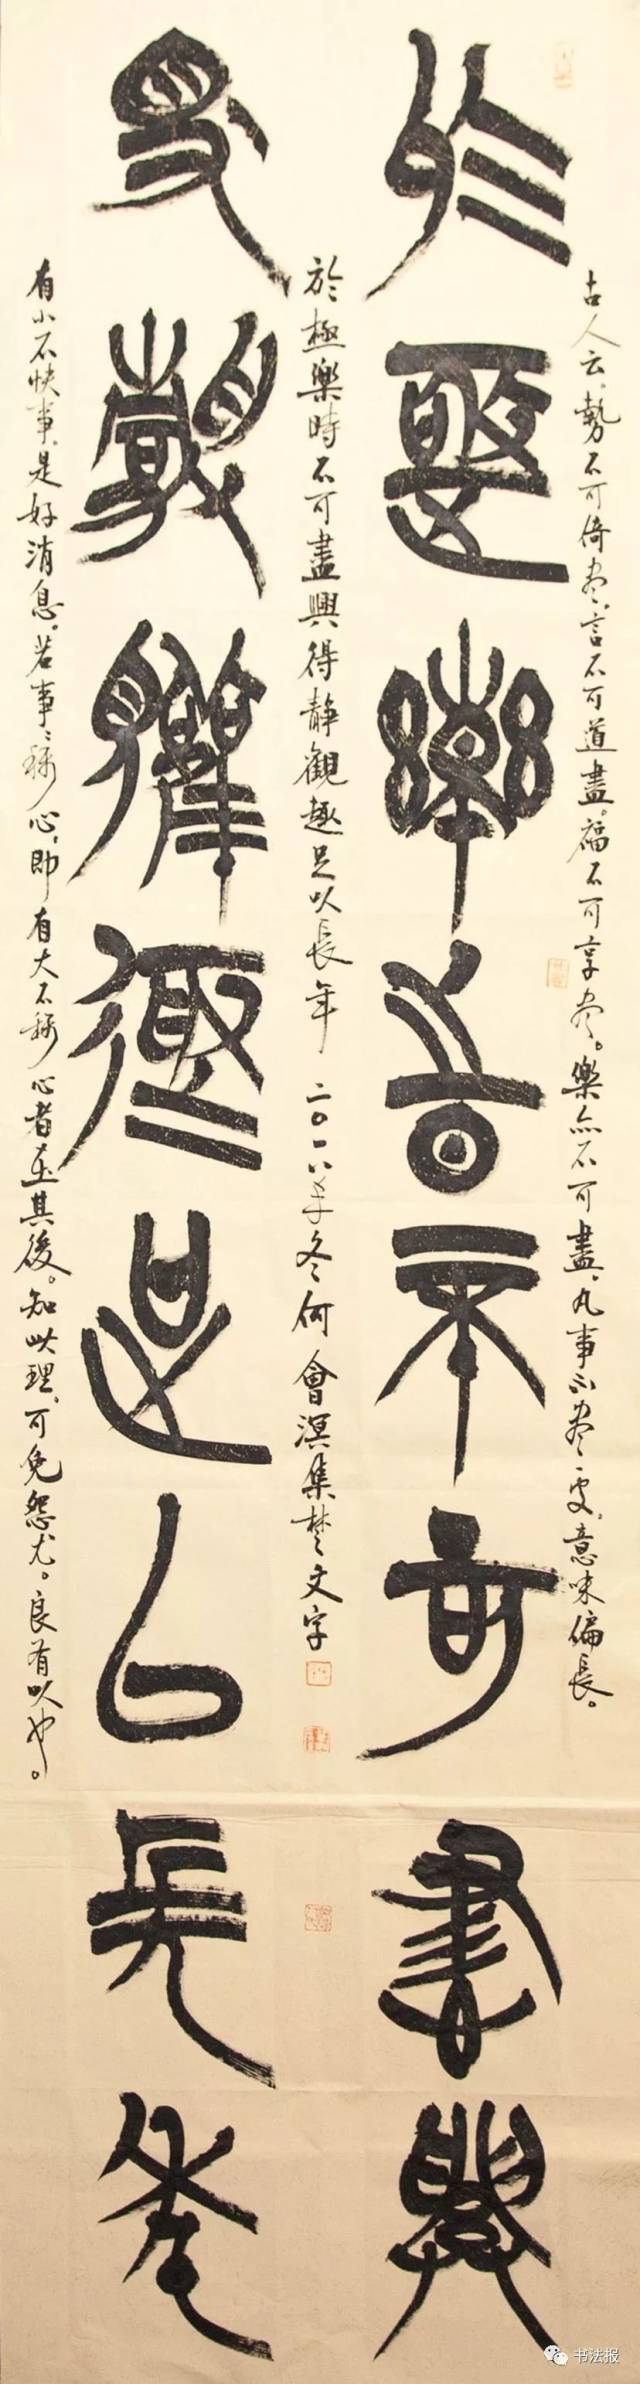 古人云。勢不可倚尽。言不可道盡。福不可享尽。樂亦不可盡。凡事不尽處。意味偏長。
於極樂時不可盡興
於極樂時不可盡興得静觀趣足以長年 二〇一八年冬何會溟集楚文字
得靜觀趣足以長年
有小不快事。是好消息。若事々稱心。即有大不稱心者在其後。知此理。可免怨尤。良有以也。
书法报